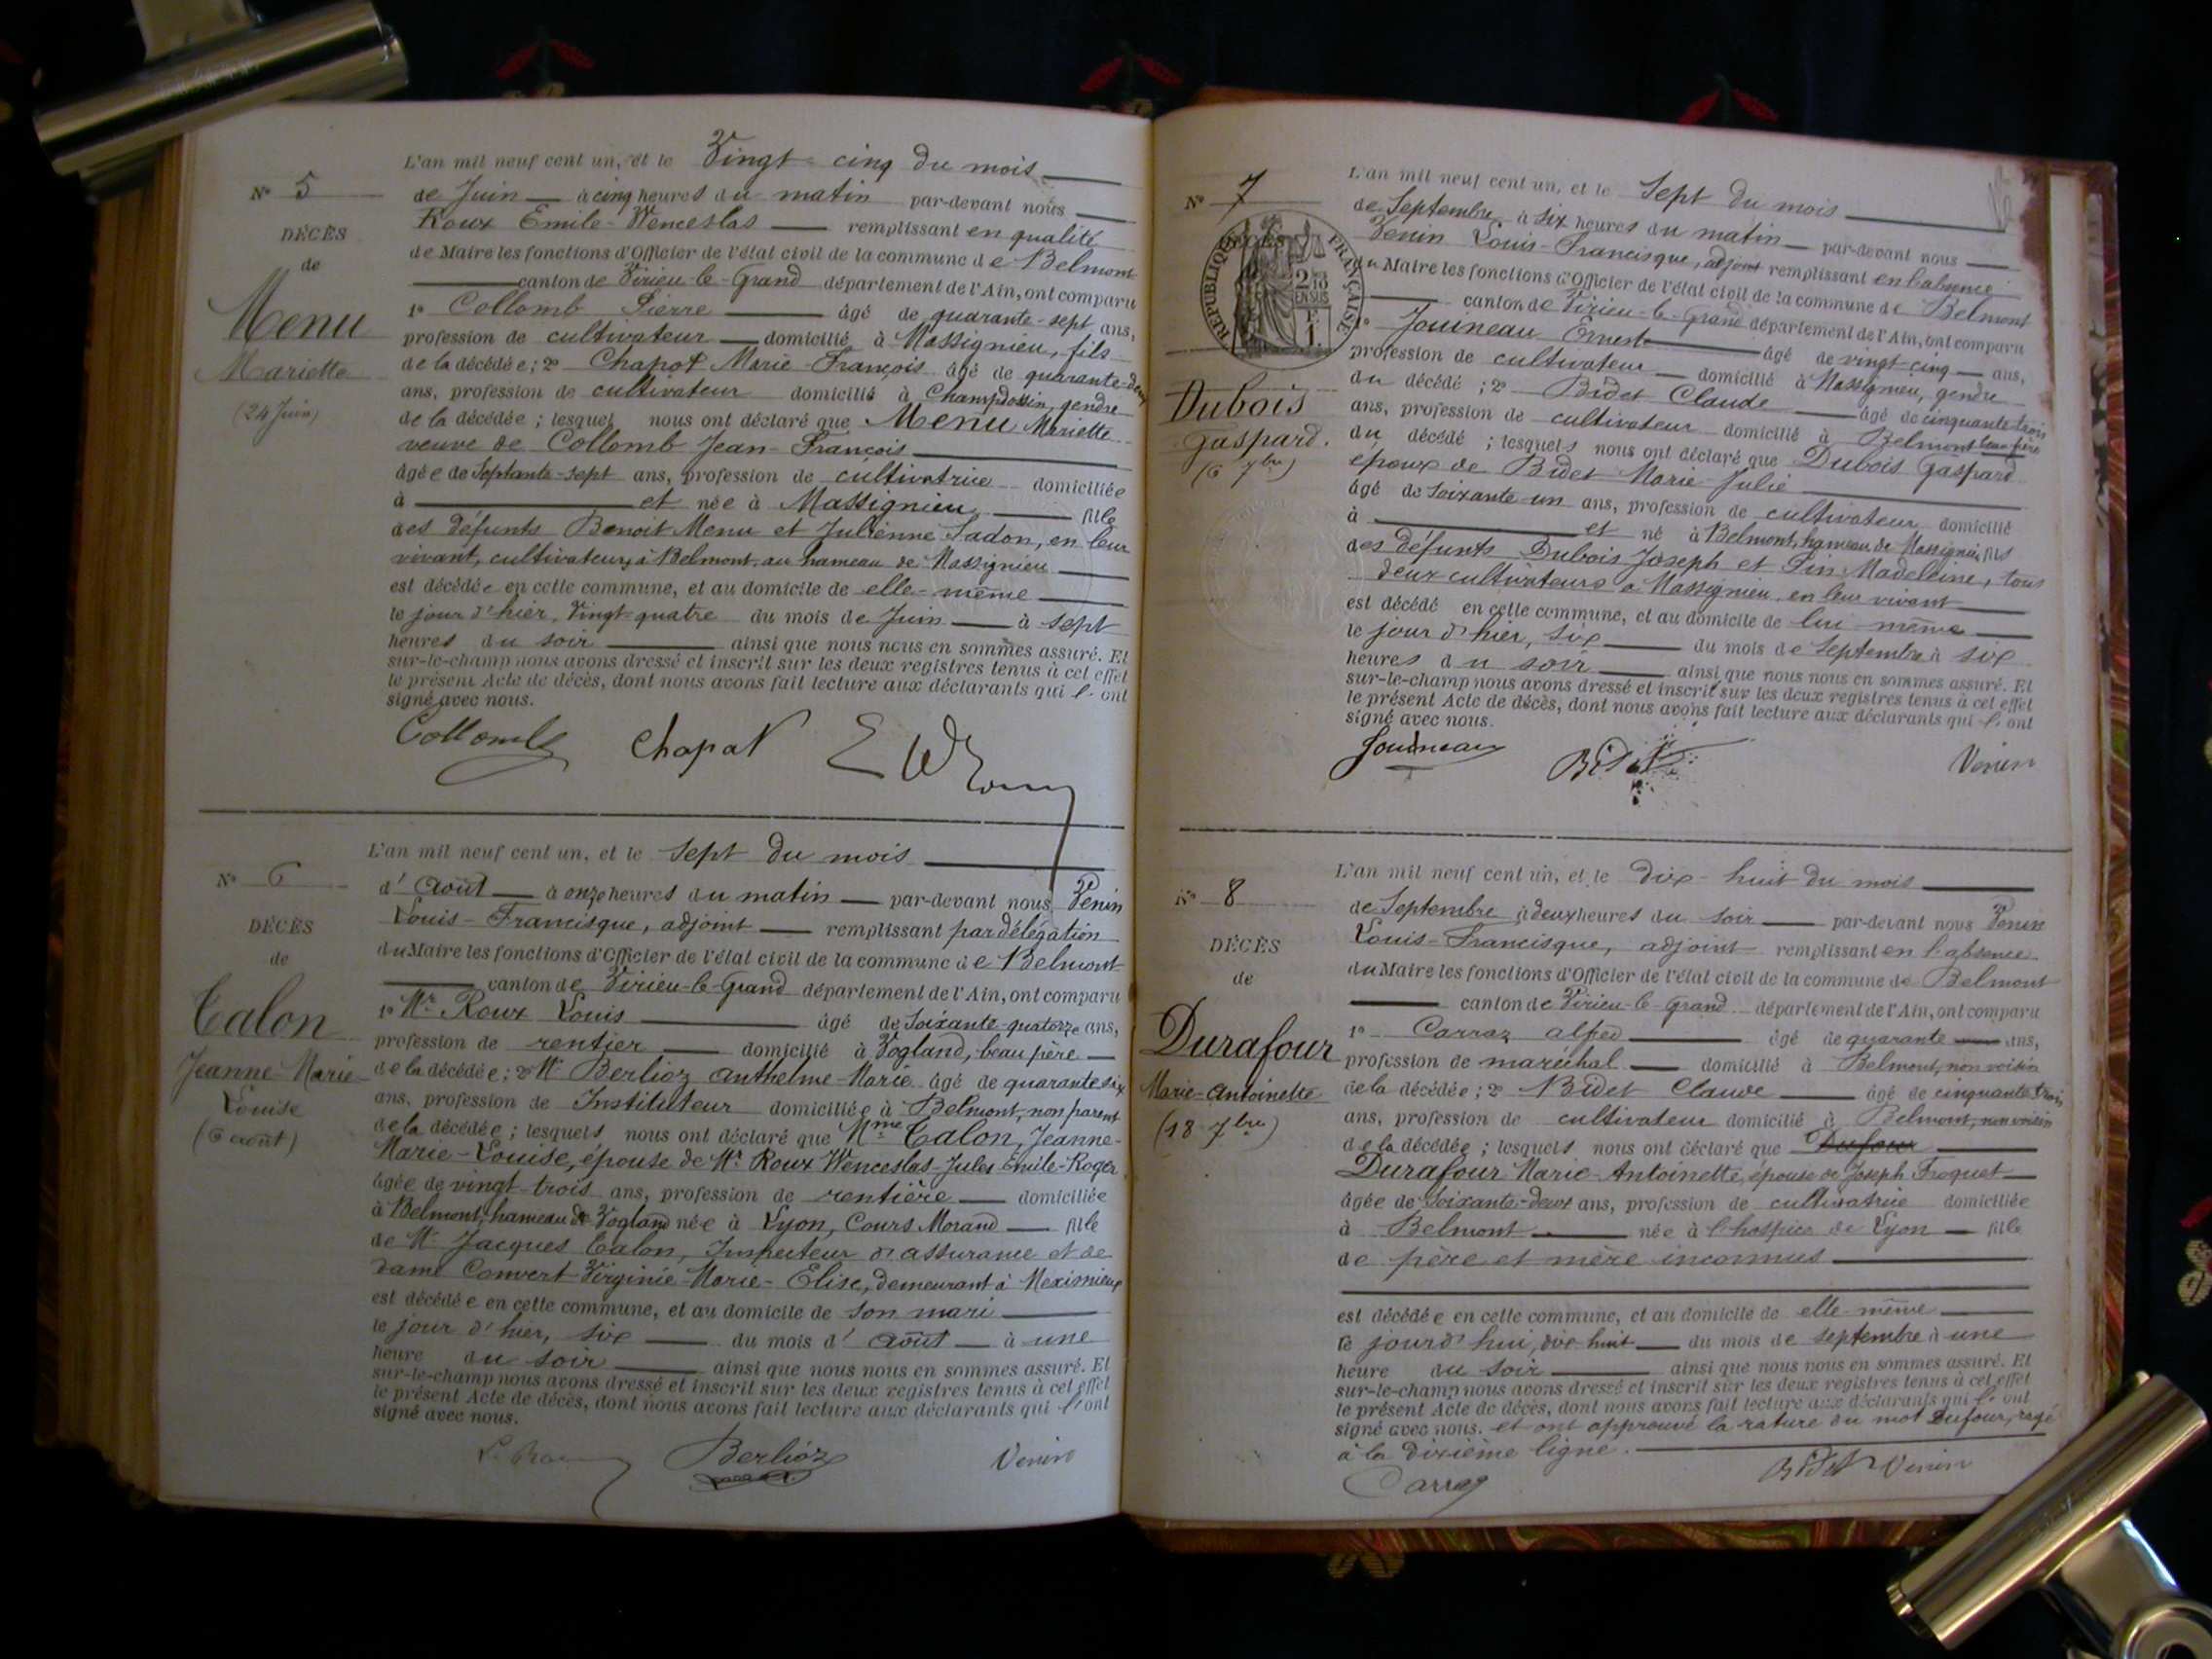 L'an mil neuf cent un, et le Vingt-cinq du mois
N° 5
de Juin à cinq heures du matin par-devant nous
Roux Emile-Wenceslas remplissant en qualité
DÉCÈS
de Maire les fonctions d'Officier de l'état civil de la commune de Belmont
de
canton de Virieu-le-Grand département de l'Ain, ont comparu
Menu
1° Collomb Pierre âgé de quarante-sept ans,
profession de cultivateur domicilié à Massignieu, fils
Mariette
de la décédée; 2° Chapot Marie-François âgé de quarante-deux
ans, profession de cultivateur domicilié à Champdossin, gendre
(24 Juin)
de la décédée; lesquels nous ont déclaré que Menu Mariette
veuve de Collomb Jean-François
âgée de Septante-sept ans, profession de cultivatrice domiciliée
à et née à Massignieu fille
des défunts Benoit Menu et Julienne Sadon, en leur
vivant, cultivateurs à Belmont, au hameau de Massignieu
est décédée en cette commune, et au domicile de elle-même
le jour d'hier, Vingt-quatre du mois de Juin à sept
heures du soir ainsi que nous nous en sommes assuré. Et
sur-le-champ nous avons dressé et inscrit sur les deux registres tenus à cet effet
le présent Acte de décès, dont nous avons fait lecture aux déclarants qui l'ont
signé avec nous.
Collomb Chapot
L'an mil neuf cent un, et le sept du mois
N° 6
d'Août à onze heures du matin par-devant nous Venin
Louis-Francisque, adjoint remplissant par délégation
DÉCÈS
du Maire les fonctions d'Officier de l'état civil de la commune de Belmont
de
canton de Virieu-le-Grand département de l'Ain, ont comparu
Calon
1° Mr Roux Louis âgé de Soixante-quatorze ans,
profession de rentier domicilié à Vogland, beau père
Jeanne-Marie-
de la décédée; 2° Mr Berlioz Anthelme-Marie âgé de quarante six
Louise
ans, profession de Instituteur domiciliée à Belmont, non parent
(6 août)
de la décédée; lesquels nous ont déclaré que Mme Calon, Jeanne-
Marie-Louise, épouse de Mr Roux Wenceslas-Jules Emile-Roger
âgée de vingt-trois ans, profession de rentière domiciliée
à Belmont, hameau de Vogland née à Lyon, Cours Morand fille
de Mr Jacques Calon, Inspecteur d'assurance et de
dame Convert Virginie-Marie-Elise, demeurant à Meximieux
est décédée en cette commune, et au domicile de son mari
le jour d'hier, six du mois d'Août à une
heure du soir ainsi que nous nous en sommes assuré. Et
sur-le-champ nous avons dressé et inscrit sur les deux registres tenus à cet effet
le présent Acte de décès, dont nous avons fait lecture aux déclarants qui l'ont
signé avec nous.
Berlioz Venin
L'an mil neuf cent un, et le Sept du mois
N° 7
de Septembre à six heures du matin par-devant nous
Venin Louis-Francisque, adjoint remplissant en l'absence
RÉPUBLIQUE FRANÇAISE
2/10 EN SUS
F. 1.
du Maire les fonctions d'Officier de l'état civil de la commune de Belmont
canton de Virieu-le-Grand département de l'Ain, ont comparu
1° Jouineau Ernest âgé de vingt-cinq ans,
profession de cultivateur domicilié à Massignieu, gendre
Dubois
du décédé; 2° Bidet Claude âgé de cinquante-trois
Gaspard.
ans, profession de cultivateur domicilié à Belmont beau-frère
(6 7bre)
du décédé; lesquels nous ont déclaré que Dubois Gaspard
époux de Bidet Marie-Julie
âgé de Soixante-un ans, profession de cultivateur domicilié
à et né à Belmont, hameau de Massignieu fils
des défunts Dubois Joseph et Pin Madeleine, tous
deux cultivateurs à Massignieu, en leur vivant
est décédé en cette commune, et au domicile de lui-même
le jour d'hier, six du mois de Septembre à six
heures du soir ainsi que nous nous en sommes assuré. Et
sur-le-champ nous avons dressé et inscrit sur les deux registres tenus à cet effet
le présent Acte de décès, dont nous avons fait lecture aux déclarants qui l'ont
signé avec nous.
Jouineau Bidet Venin
L'an mil neuf cent un, et le dix-huit du mois
N° 8
de Septembre à deux heures du soir par-devant nous Venin
Louis-Francisque, adjoint remplissant en l'absence
DÉCÈS
du Maire les fonctions d'Officier de l'état civil de la commune de Belmont
de
canton de Virieu-le-Grand département de l'Ain, ont comparu
Durafour
1° Carraz Alfred âgé de quarante ans,
profession de maréchal domicilié à Belmont, non voisin
Marie-Antoinette
de la décédée; 2° Bidet Claude âgé de cinquante trois
(18 7bre)
ans, profession de cultivateur domicilié à Belmont, non voisin
de la décédée; lesquels nous ont déclaré que Dufour
Durafour Marie-Antoinette, épouse de Joseph Froquet
âgée de Soixante-deux ans, profession de cultivatrice domiciliée
à Belmont née à l'hospice de Lyon fille
de père et mère inconnus
est décédée en cette commune, et au domicile de elle-même
le jourd'hui, dix huit du mois de septembre à une
heure du soir ainsi que nous nous en sommes assuré. Et
sur-le-champ nous avons dressé et inscrit sur les deux registres tenus à cet effet
le présent Acte de décès, dont nous avons fait lecture aux déclarants qui l'ont
signé avec nous. et ont approuvé la rature du mot Dufour, rayé
à la dixième ligne.
Carraz Bidet Venin